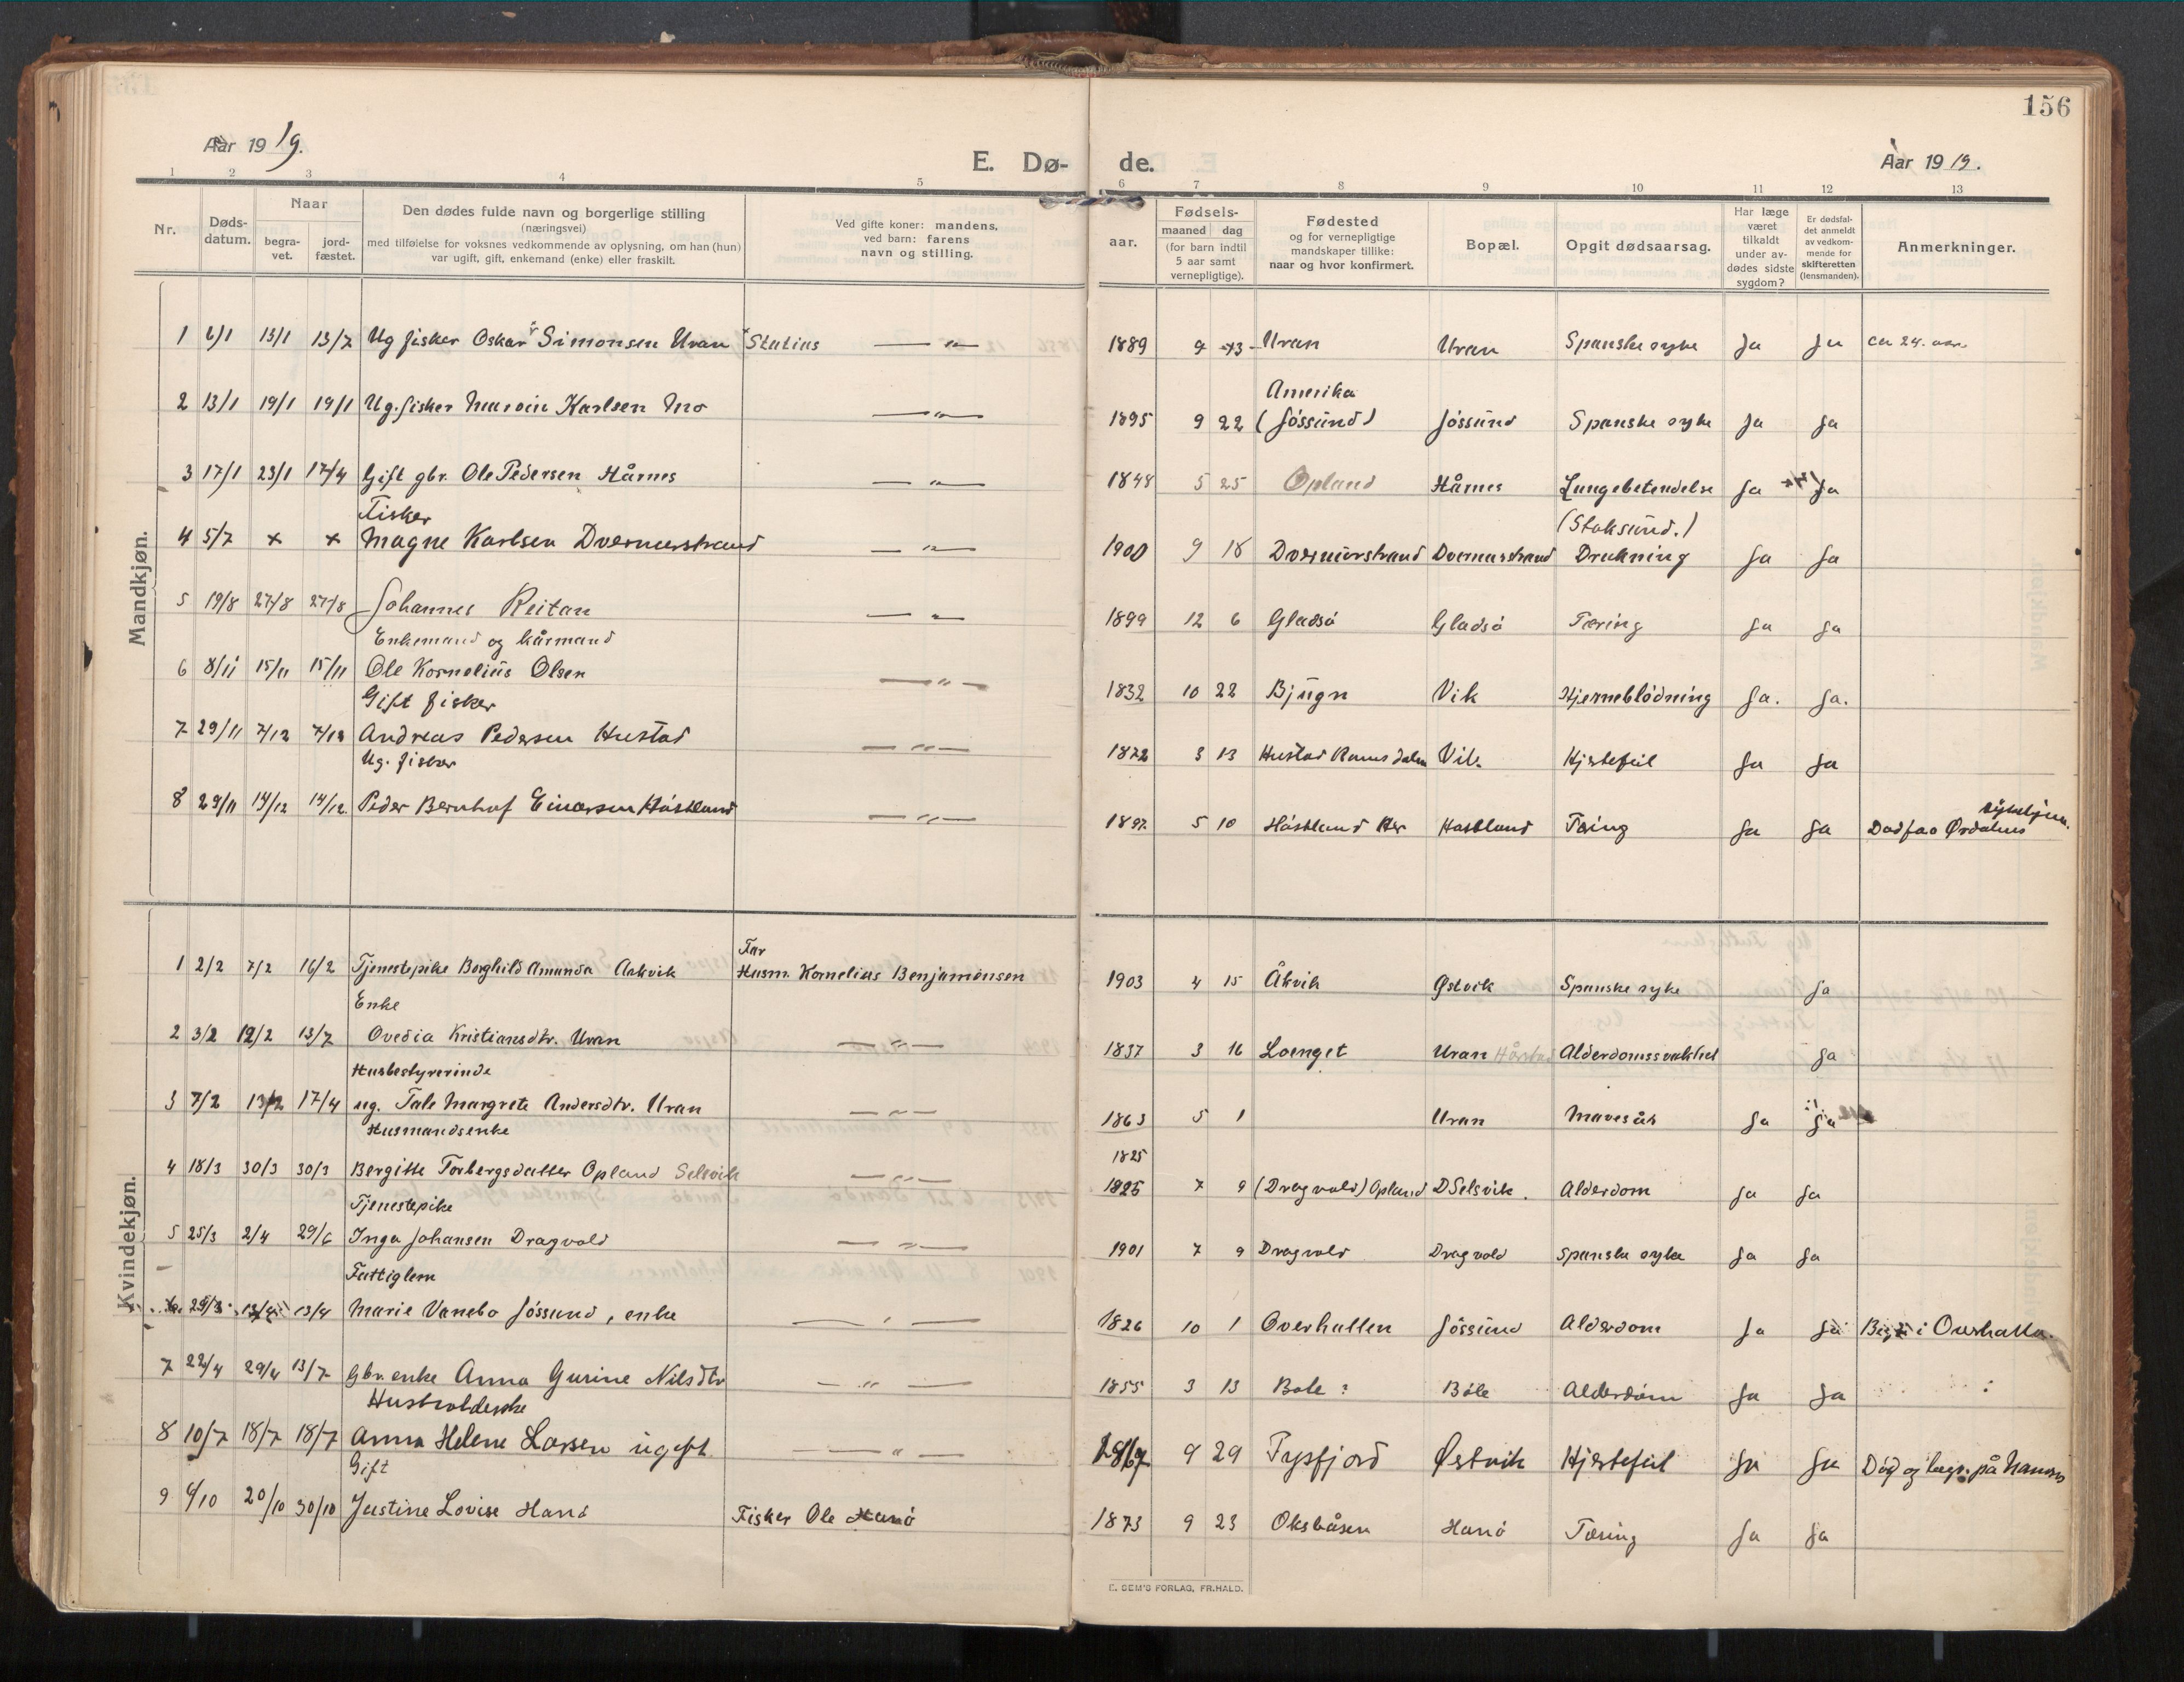 156
Aar 1919.
E. Dø-
de.
Aar 1919.
1 2 3 4 5 6 7 8 9 10 11 12 13
Nr.
Døds-
datum.
Naar
begra-
vet.
jord-
fæstet.
Den dødes fulde navn og borgerlige stilling
(næringsvei)
med tilføielse for voksnes vedkommende av oplysning, om han (hun)
var ugift, gift, enkemand (enke) eller fraskilt.
Ved gifte koner: mandens,
ved barn: farens
navn og stilling.
aar.
Fødsels-
maaned dag
(for barn indtil
5 aar samt
vernepligtige).
Fødested
og for vernepligtige
mandskaper tillike:
naar og hvor konfirmert.
Bopæl.
Opgit dødsaarsag.
Har læge
været
tilkaldt
under av-
dødes sidste
sygdom?
Er dødsfal-
det anmeldt
av vedkom-
mende for
skifteretten
(lensmanden).
Anmerkninger.
Mandkjøn.
1 6/1 13/1 13/7 Ug fisker Oskar Simonsen Uran Statius — " — 1889 9 Uran Uran Spanske syke Ja Ja ca 24.
Amerika
2 13/1 19/1 19/1 Ug. fisker Marvin Karlsen Mo — " — 1895 9 22 (Jössund) Jössund Spanske syke Ja Ja
3 17/1 23/1 17/4 Gift gbr. Ole Pedersen Hårnes — " — 1848 5 25 Opland Hårnes Lungebetendelse Ja Ja
Fisker (Stoksund.)
4 5/7 × × Magne Karlsen Dvernesstrand — " — 1900 9 18 Dvernesstrand Dvernesstrand Drukning Ja Ja
5 19/8 27/8 27/8 Johannes Reitan — " — 1899 12 6 Gladsö Gladsö Tæring Ja Ja
Enkemand og kårmand
6 8/11 15/11 15/11 Ole Kornelius Olsen — " — 1832 10 22 Bjugn Vik Hjerneblödning Ja. Ja.
Gift fisker
7 29/11 7/12 7/12 Andreas Pedersen Hustad — " — 1872 3 13 Hustad Romsdalen Vik Hjertefeil Ja Ja
Ug. fisker
8 29/11 14/12 14/12 Peder Bernhof Einarsen Håstland — " — 1897 5 10 Håstland Hastland Tæring Ja Ja
Kvindekjøn.
Far
1 2/2 7/2 16/2 Tjenestepike Borghild Amunda Aakvik Husm. Kornelius Benjamensen 1903 4 15 Åkvik Østvik Spanske syke Ja
Enke
2 3/2 12/2 13/7 Ovedia Kristiansdtr. Uran — " — 1837 3 16 Loenget Uran Alderdomssvakhet Ja
Husbestyrerinde
3 7/2 13/2 17/4 ug. Tale Margrete Andersdtr. Uran — " — 1863 5 1 Uran Mavesår Ja Ja
Husmandsenke
1825
4 18/3 30/3 30/3 Bergitte Torbergsdatter Opland Selsvik — " — 1825 7 9 (Dragvold) Opland Selsvik. Alderdom Ja Ja
Tjenestepike
5 25/3 2/4 29/6 Inga Johansen Dragvold — " — 1901 7 9 Dragvold Dragvold Spanske syke Ja Ja
Fattiglem
29/3 13/4 13/4 Marie Vanebo Jössund, enke — " — 1826 10 1 Overhallen Jössund Alderdom Ja Ja i Overhalla.
7 22/4 29/4 13/7 Gbr. enke Anna Gurine Nilsdtr — " — 1855 3 13 Bole ? Böle Alderdom Ja Ja
8 10/7 18/7 18/7 Anna Helene Larsen ugift — " — 1867 9 29 Tysfjord Østvik Hjertefeil Ja Ja Död og begr. på
Gift
9 9/10 20/10 30/10 Justine Lovise Hanö Fisker Ole Hanö 1873 9 23 Oksbåsen Hanö Tæring Ja Ja
E. SEM'S FORLAG, FR.HALD.